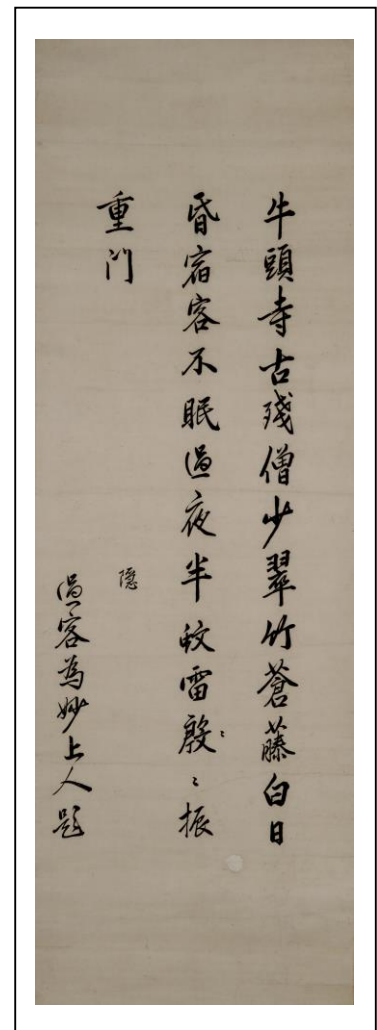 牛頭寺古殘僧少翠竹蒼藤白日
昏宿客不眠過夜半蚊雷殷〻振
重门
隱
過客為妙上人題